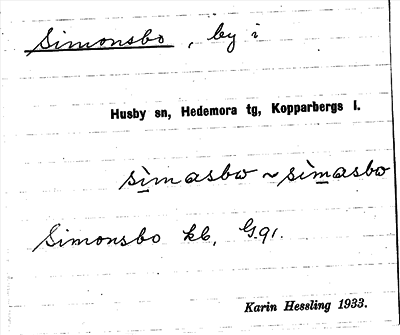 Simonsbo, by i
Husby sn, Hedemora tg, Kopparbergs l.
sìmasbω ~ sìmasbω
Simonsbo kb, G.91.
Karin Hessling 1933.